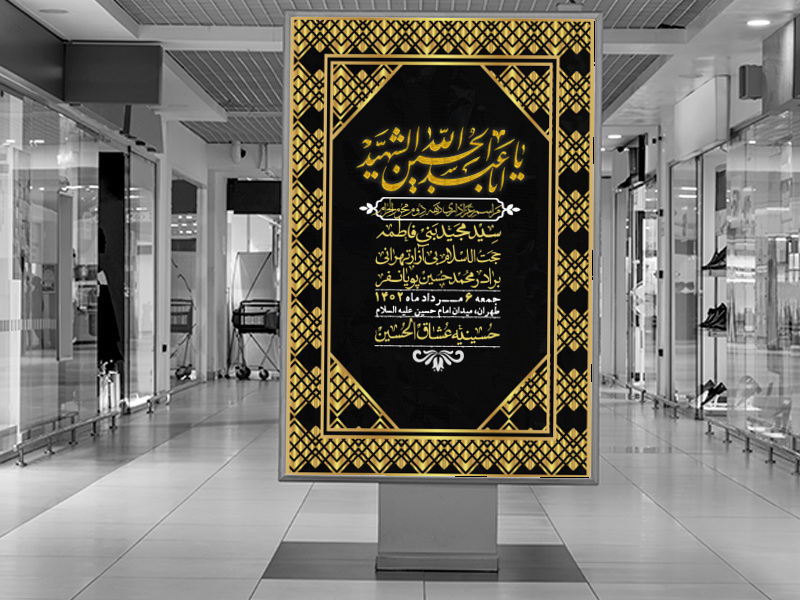 یا اباعبدالله الحسین الشهید
مراسم عزاداری دهه دوم محرم الحرام
سید مجید بنی فاطمه
حجت السلام بی آزار تهرانی
برادر محمد حسین پویانفر
جمعه ۶ مرداد ماه ۱۴۰۲
طهران، میدان امام حسین علیه السلام
حسینیه عشاق الحسین